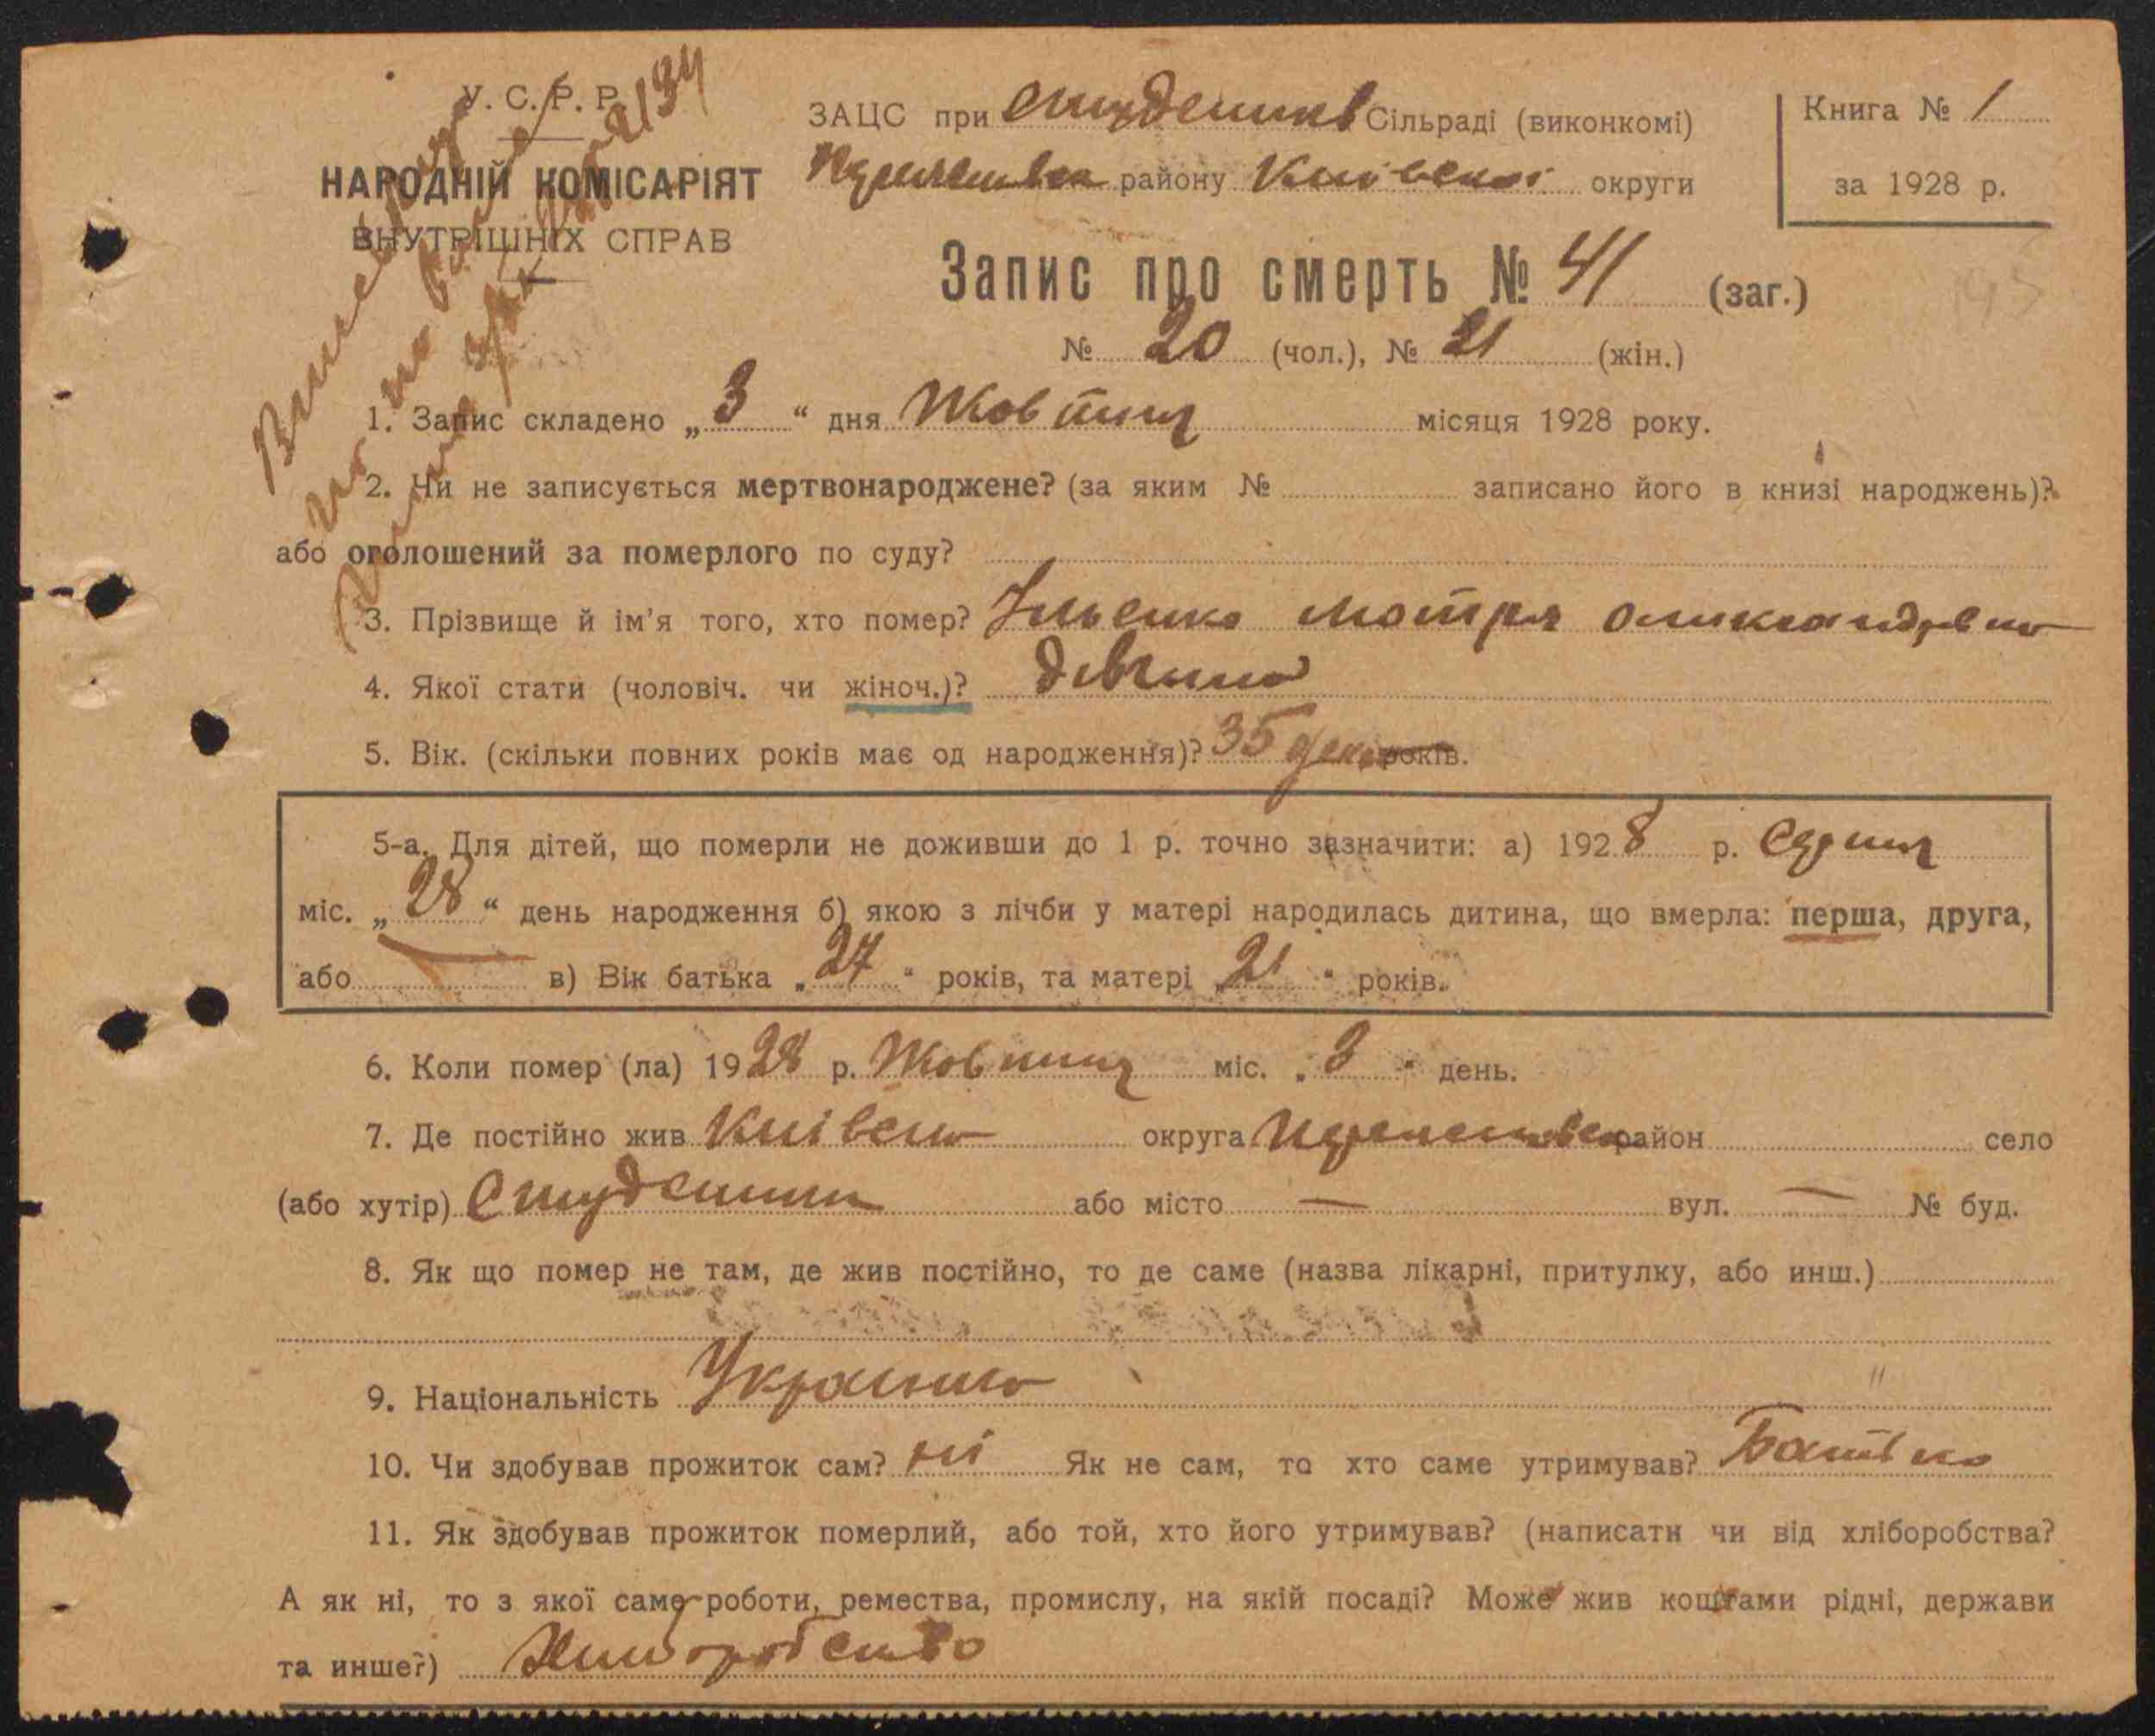 У. С. Р. Р.
НАРОДНІЙ КОМІСАРІЯТ
ВНУТРІШНІХ СПРАВ
ЗАЦС при Сільраді (виконкомі)
району Київської округи
Книга № 1
за 1928 р.
Запис про смерть № 41 (заг.)
№ 20 (чол.), № 21 (жін.)
1. Запис складено „ 3 “ дня Жовтня місяця 1928 року.
2. Чи не записується мертвонароджене? (за яким № записано його в книзі народжень)?
або оголошений за померлого по суду?
3. Прізвище й ім'я того, хто помер? Ільенко Мотря Олександровна
4. Якої стати (чоловіч. чи жіноч.)? дівчина
5. Вік. (скільки повних років має од народження)? 35 років.
5-а. Для дітей, що померли не доживши до 1 р. точно зазначити: а) 1928 р. Серпня
міс. „ 28 “ день народження б) якою з лічби у матері народилась дитина, що вмерла: перша, друга,
або в) Вік батька „ 27 “ років, та матері „ 21 “ років.
6. Коли помер (ла) 1928 р. Жовтня міс. „ 3 “ день.
7. Де постійно жив Київська округа район село
(або хутір) Студеники або місто — вул. — № буд.
8. Як що помер не там, де жив постійно, то де саме (назва лікарні, притулку, або инш.)
9. Національність
10. Чи здобував прожиток сам? ні Як не сам, то хто саме утримував? Батько
11. Як здобував прожиток померлий, або той, хто його утримував? (написати чи від хліборобства?
А як ні, то з якої саме роботи, ремества, промислу, на якій посаді? Може жив коштами рідні, держави
та инше?) Хліборобство